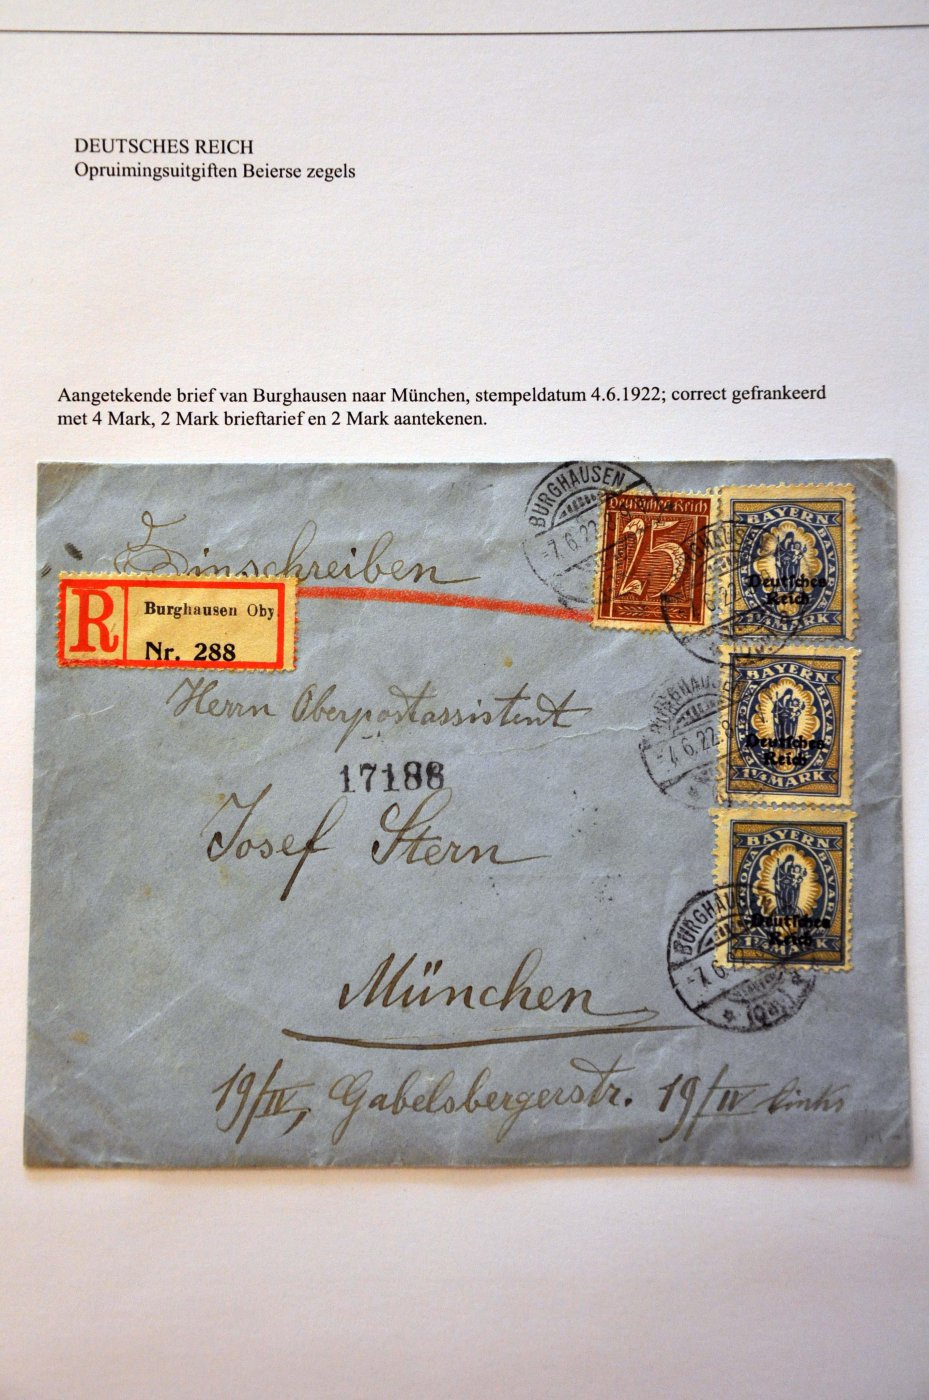 DEUTSCHES REICH
Opruimingsuitgiften Beierse zegels
Aangetekende brief van Burghausen naar München, stempeldatum 4.6.1922; correct gefrankeerd
met 4 Mark, 2 Mark brieftarief en 2 Mark aantekenen.
Einschreiben
R Burghausen Oby
Nr. 288
BURGHAUSEN
Deutsches Reich
25
BAYERN
Deutsches
Reich
1¼ MARK
BURGHAUSEN
BAYERN
Deutsches
Reich
1¼ MARK
BURGHAU
BAYERN
Deutsches
Reich
1¼ MARK
Herrn Oberpostassistent
17188
Josef Stern
München
19/IV, Gabelsbergerstr. 19/IV links